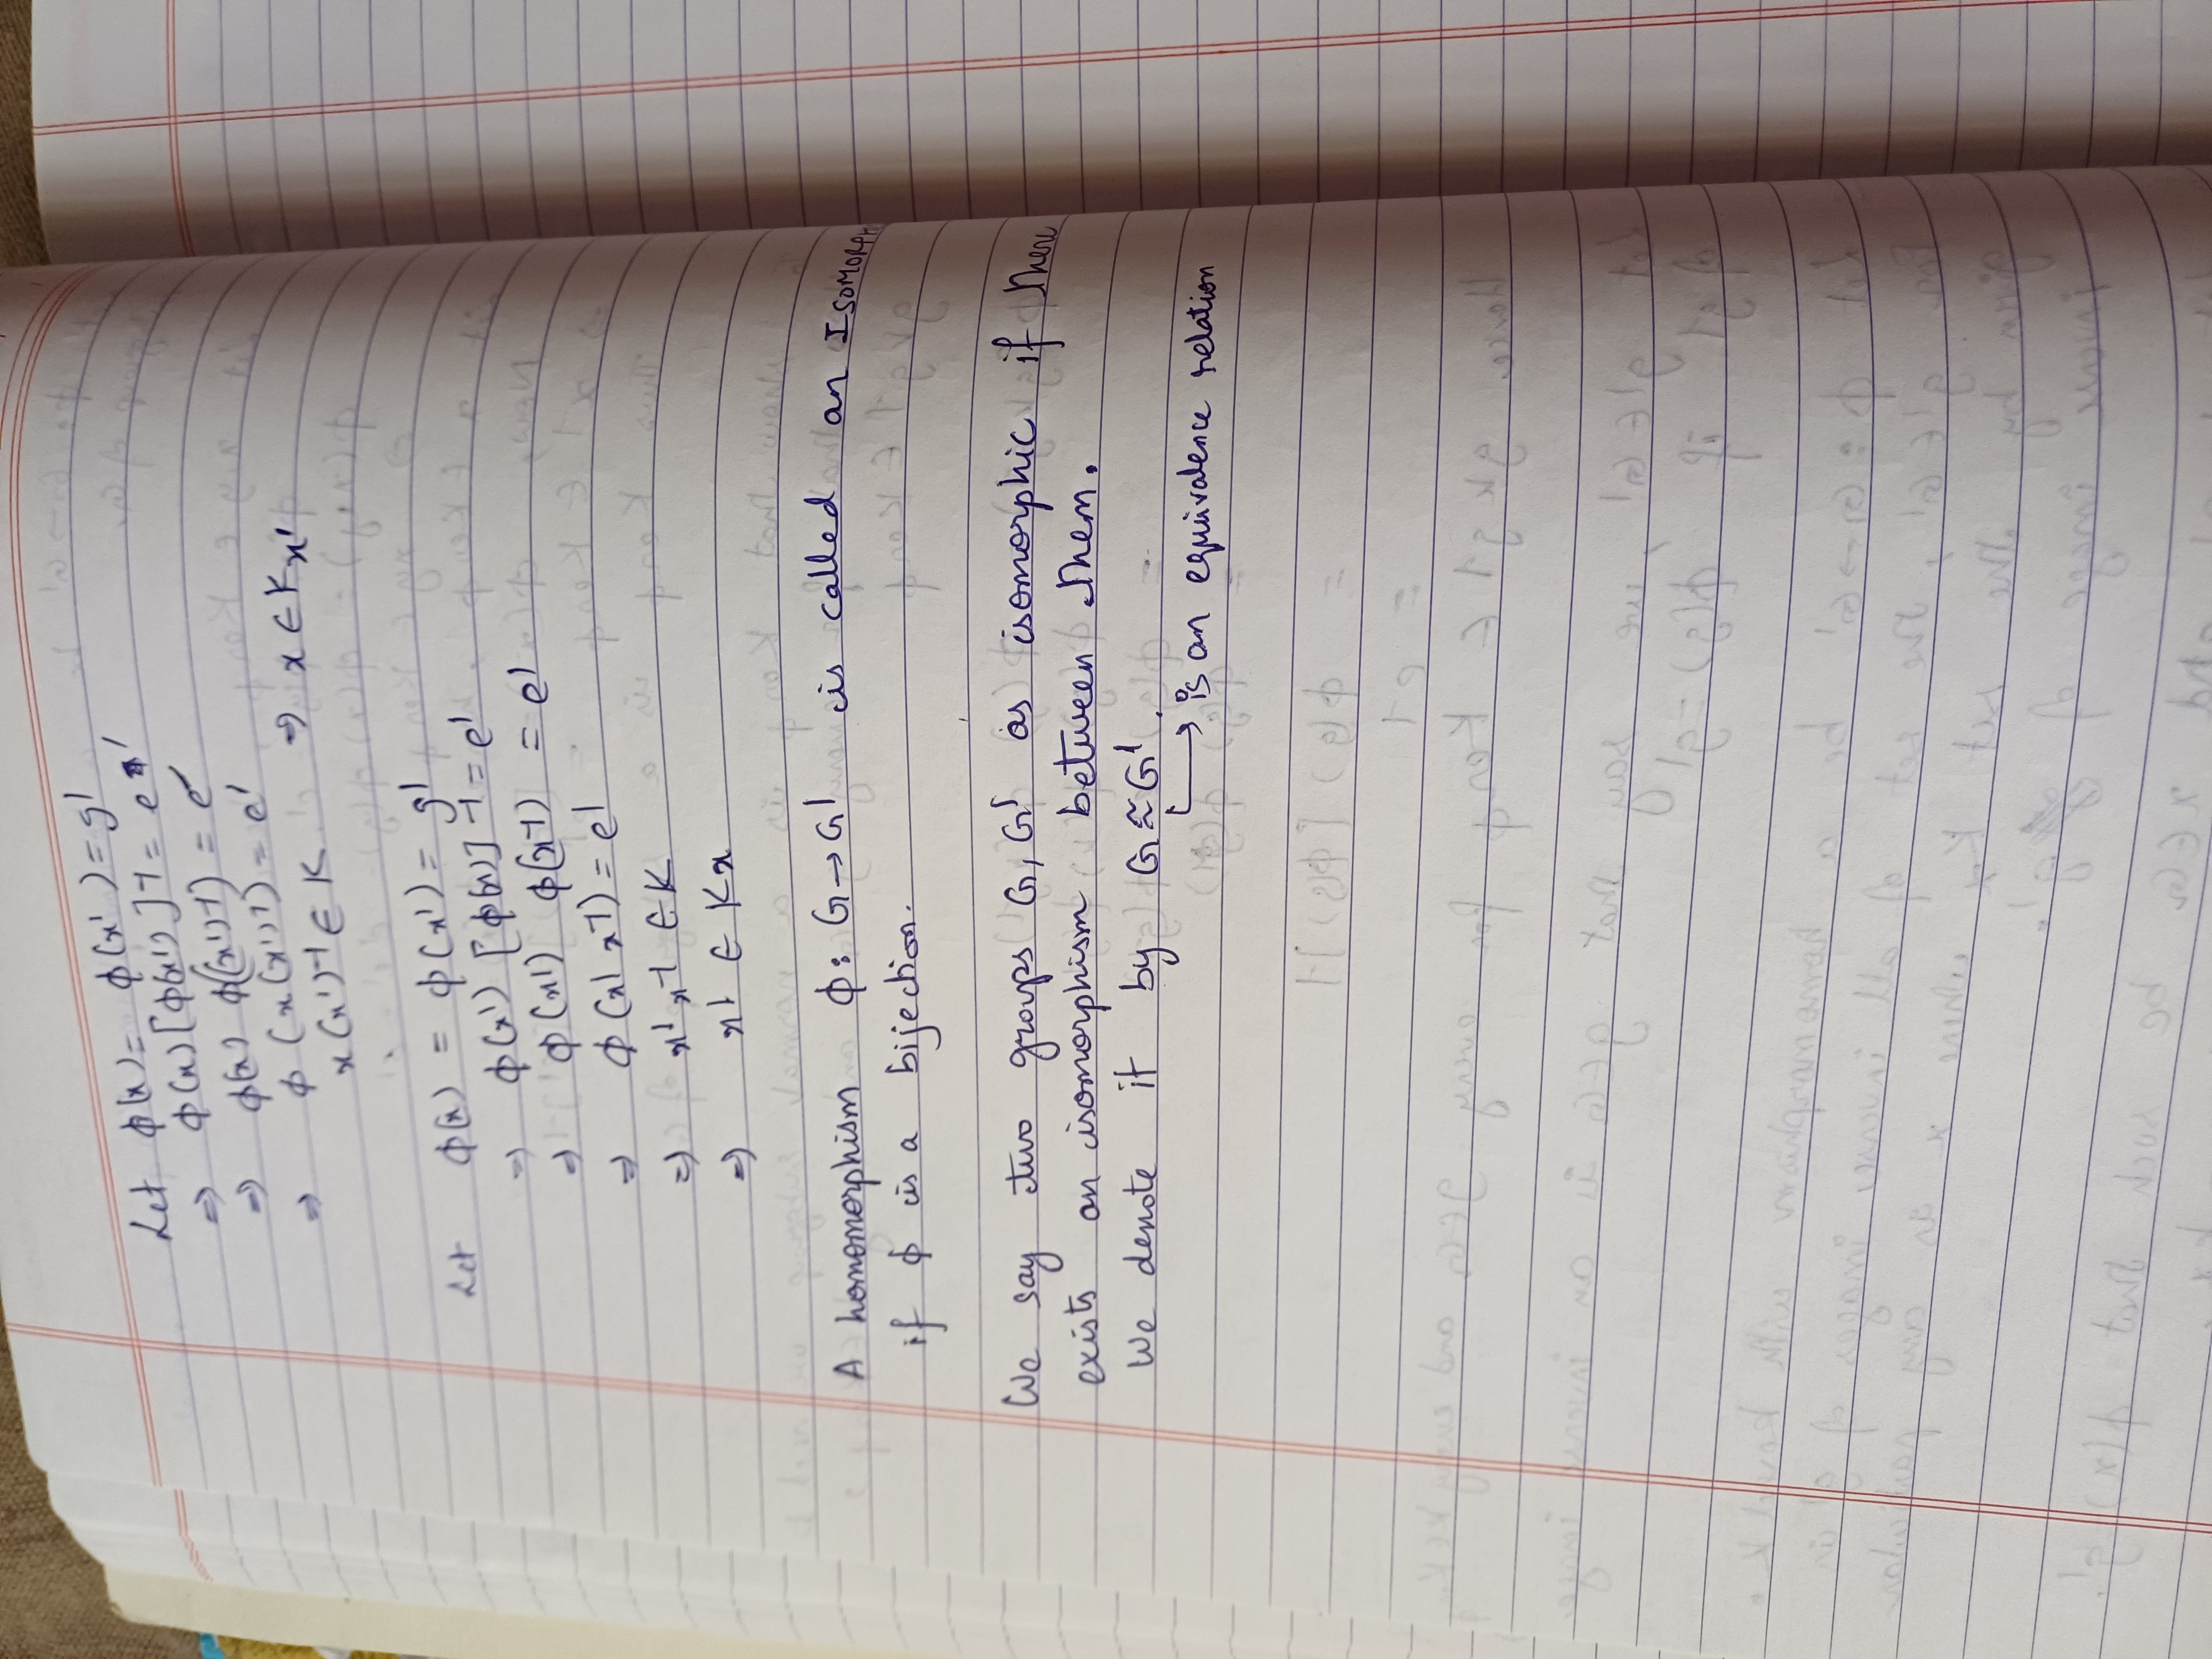 Let φ(x) = φ(x') = g'
⇒ φ(x) [φ(x')]-1 = e'
⇒ φ(x) φ((x')-1) = e'
⇒ φ (x (x')-1) = e'
x(x')-1 ∈ K ⇒ x ∈ Kx'
Let φ(x) = φ(x') = g'
⇒ φ(x') [φ(x)]-1 = e'
⇒ φ(x') φ(x-1) = e'
⇒ φ(x' x-1) = e'
⇒ x'x-1 ∈ K
⇒ x' ∈ Kx
A homomorphism φ: G→G' is called an ISOMORPH
if φ is a bijection.
We say two groups G, G' as isomorphic if there
exists an isomorphism between them.
We denote it by G ≈ G'
↳ is an equivalence relation